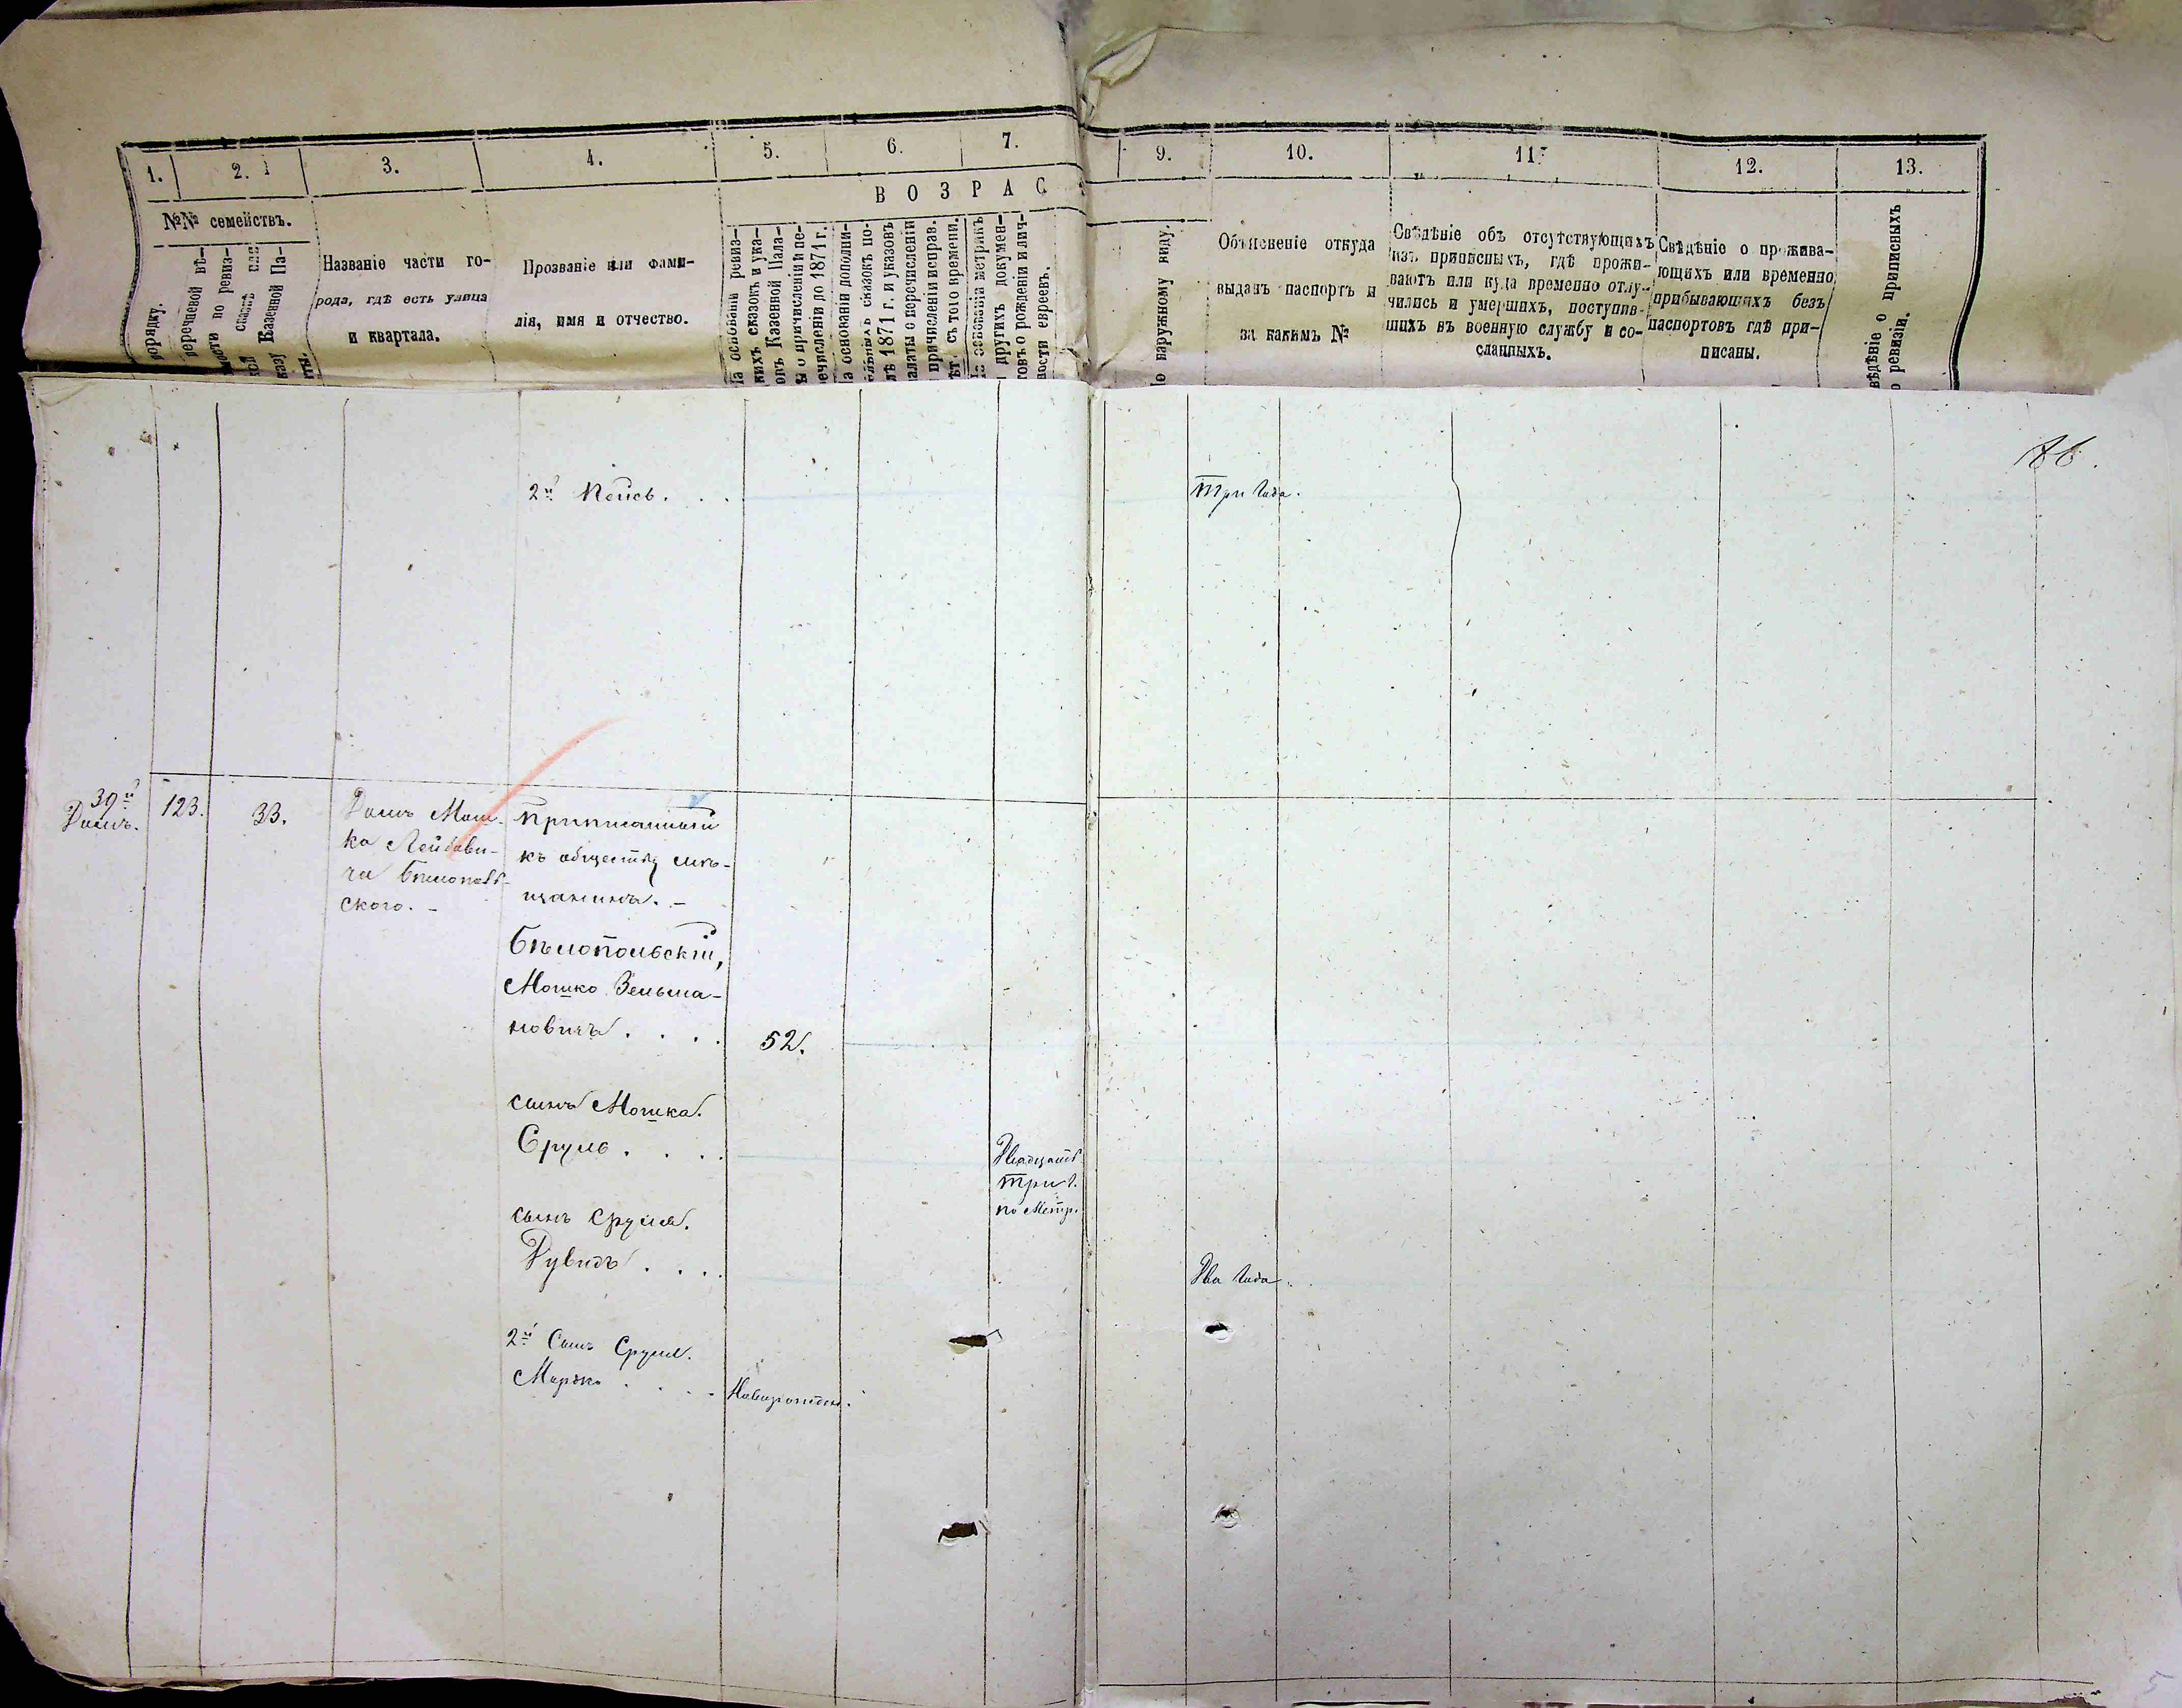 1.
2.
3.
4.
5.
6.
7.
9.
10.
11.
12.
13.
ВОЗРАС
№№ семействъ.
порядку.
перечневой вѣ-
мости по ревиз-
кой сказкѣ или
казу Казенной Па-
ты.
Названіе части го-
рода, гдѣ есть улица
и квартала.
Прозваніе или фами-
лія, имя и отчество.
На основаніи ревиз-
скихъ сказокъ и ука-
зовъ Казенной Пала-
ы о причисленіи и пе-
речисленіи до 1871 г.
а основаніи дополни-
ельныхъ сказокъ по-
лѣ 1871 г. и указовъ
алаты о перечисленіи
причисленіи исправ.
ѣт. съ того времени.
На основаніи метрикъ
и другихъ докумен-
товъ о рожденіи и лич-
ности евреевъ.
По наружному виду.
Объясненіе откуда
выданъ паспортъ и
за какимъ №
Свѣдѣніе объ отсутствующихъ
изъ приписныхъ, гдѣ прожи-
ваютъ или куда временно отлу-
чились и умершихъ, поступив-
шихъ въ военную службу и со-
сланныхъ.
Свѣдѣніе о прожива-
ющихъ или временно
прибывающихъ безъ
паспортовъ гдѣ при-
писаны.
вѣдѣніе о приписныхъ
о ревизіи.
2й Пейсъ. . .
Три года.
39й
Домъ.
123.
33.
Домъ Мош-
ка Лейбови-
ча Бѣлополь-
ского. -
Приписанный
къ обществу мѣ-
щанинъ. -
Бѣлопольскій,
Мошко Зельма-
новичъ . . . .
52.
сынъ Мошка.
Сруль . . . .
Двадцать
три г.
по Метр.
сынъ Сруля.
Дувидъ . . . .
Два года.
2й Сынъ Сруля.
Мирко . . . .
Новорожден.